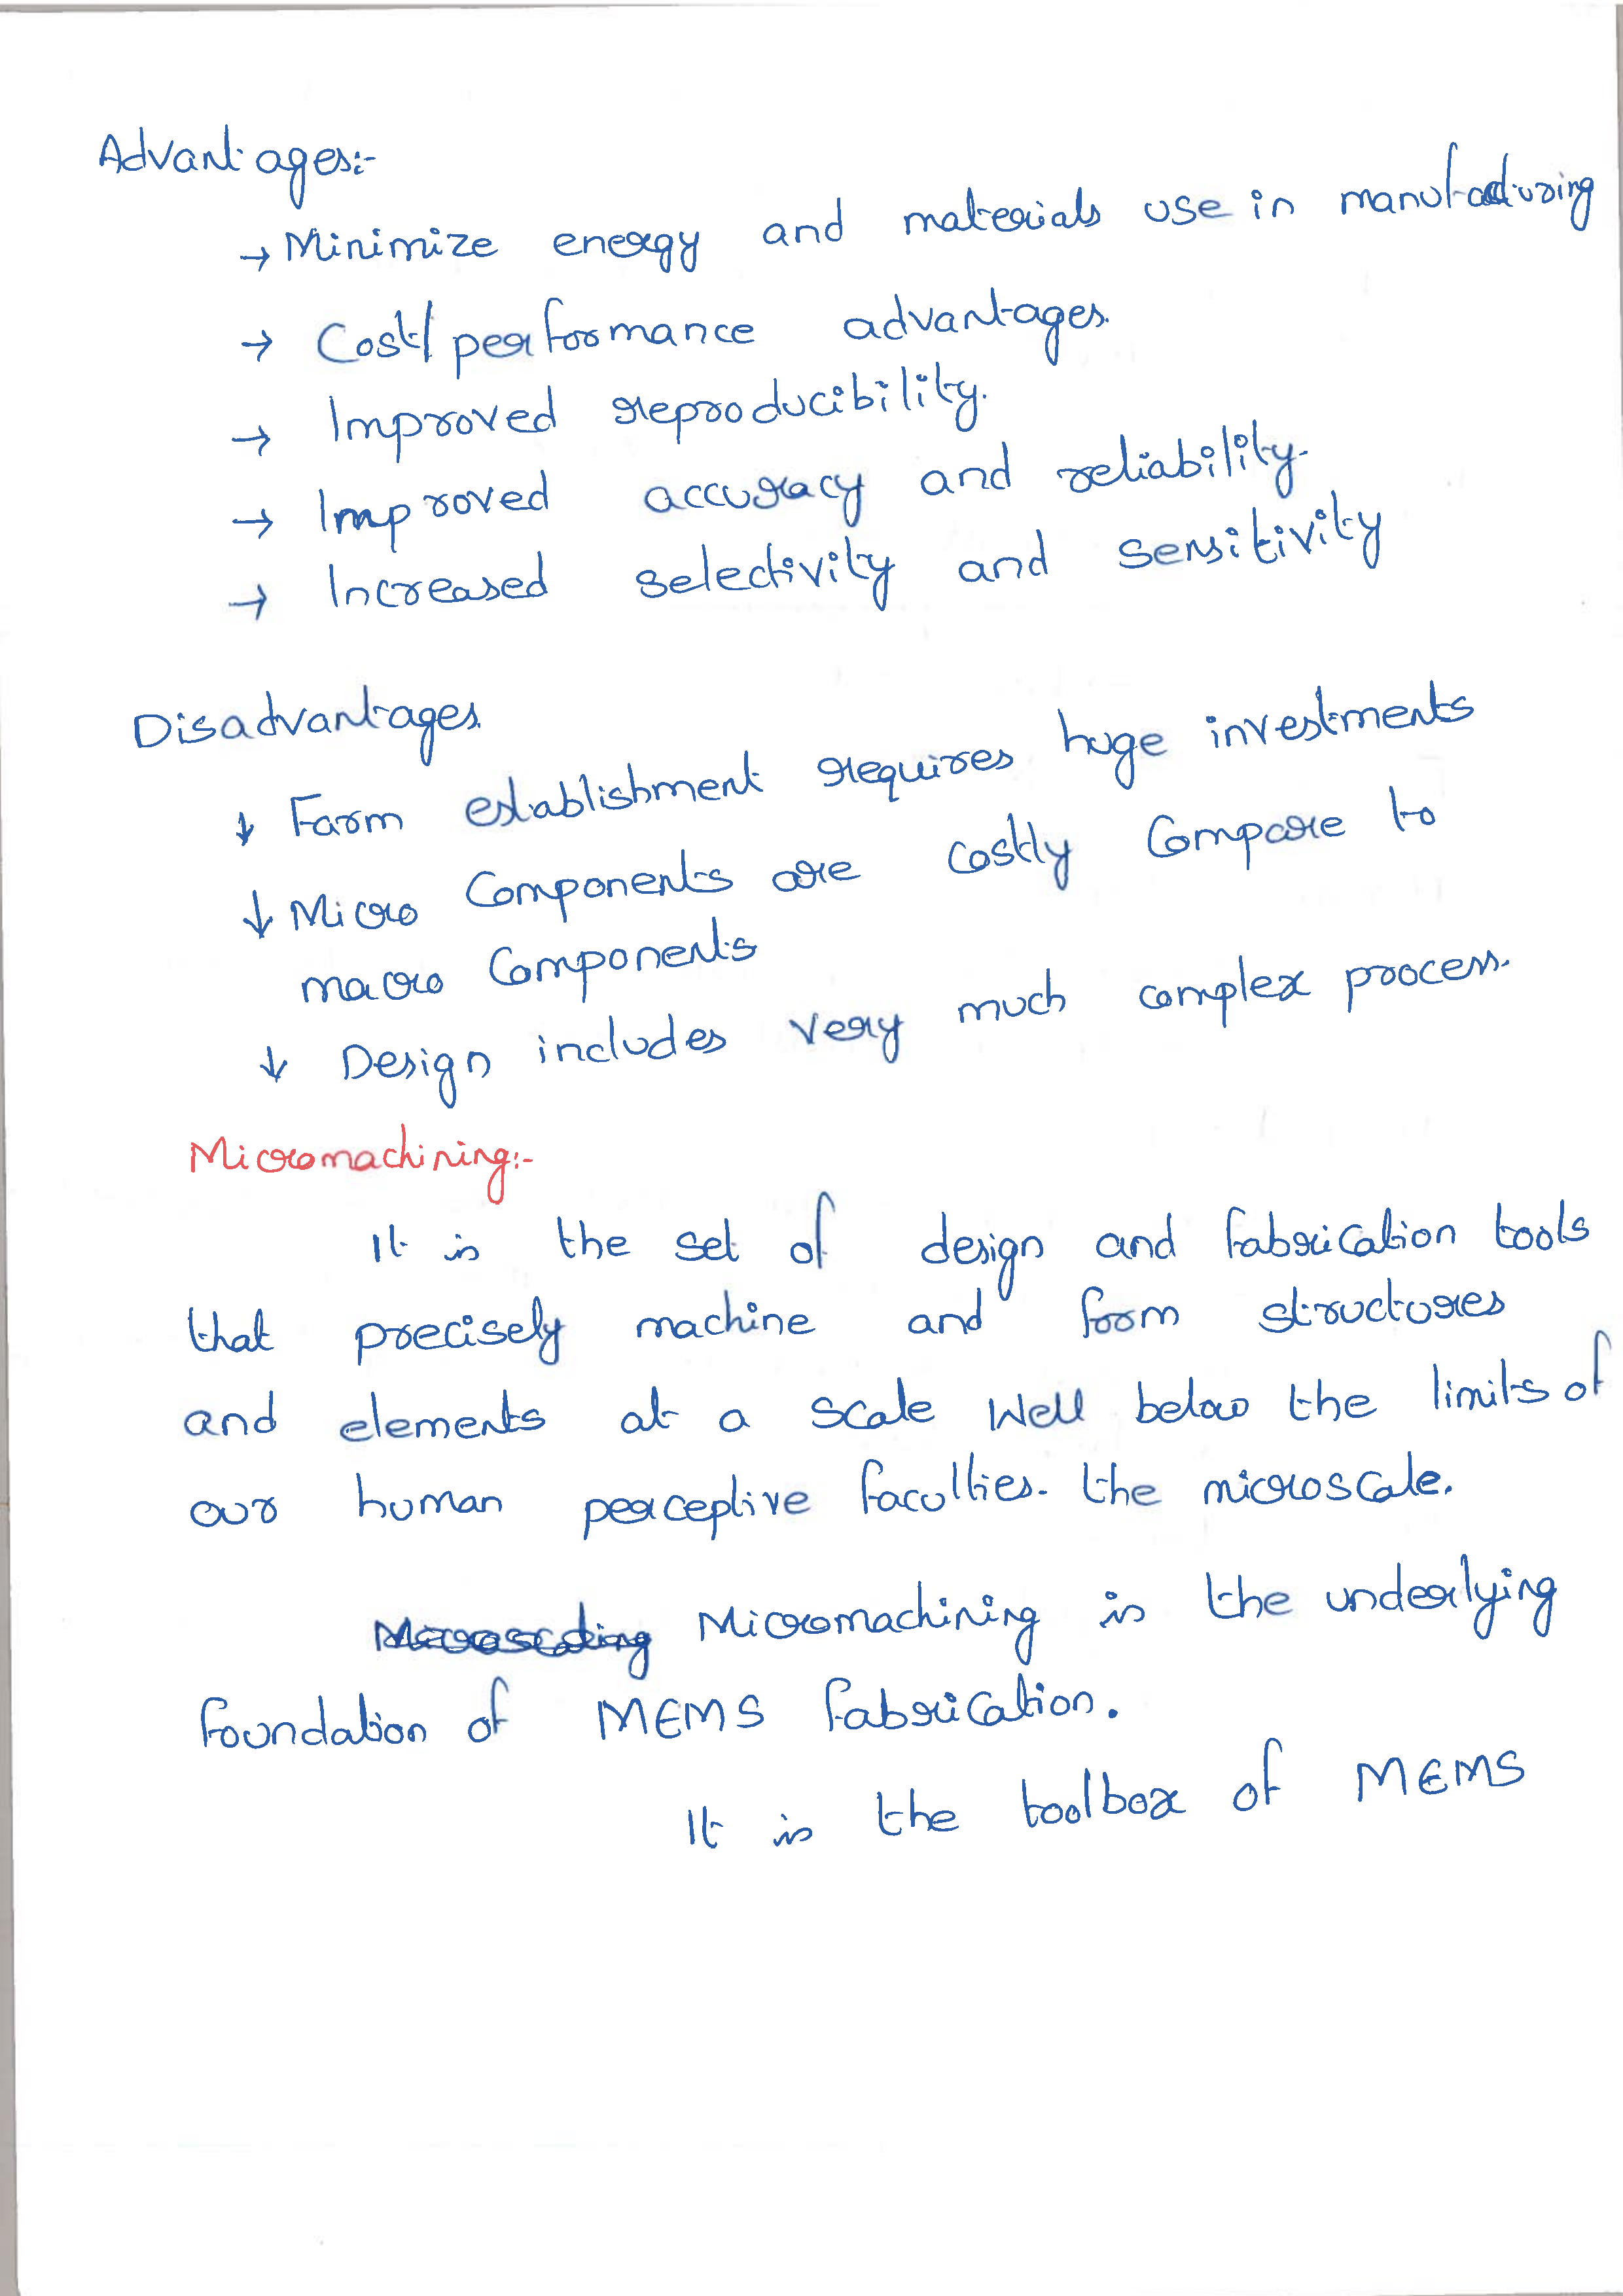 Advantages:-
→ Minimize energy and materials use in manufacturing
→ Cost/performance advantages.
→ Improved reproducibility.
→ Improved accuracy and reliability.
→ Increased selectivity and sensitivity
Disadvantages
↓ Farm establishment requires huge investments
↓ Micro Components are costly Compare to
macro Components
↓ Design includes very much complex process.
Micromachining:-
It is the set of design and fabrication tools
that precisely machine and form structures
and elements at a scale well below the limits of
our human perceptive faculties. the microscale.
Micromachining is the underlying
foundation of MEMS fabrication.
It is the toolbox of MEMS